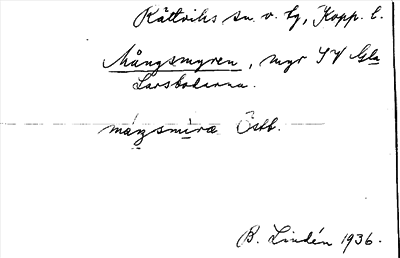 Rättviks sn. o. tg, Kopp. l.
Mångsmyren, myr SV Gla
Larsbodarna.
máŋsmìra Östb.
B. Lindén 1936.